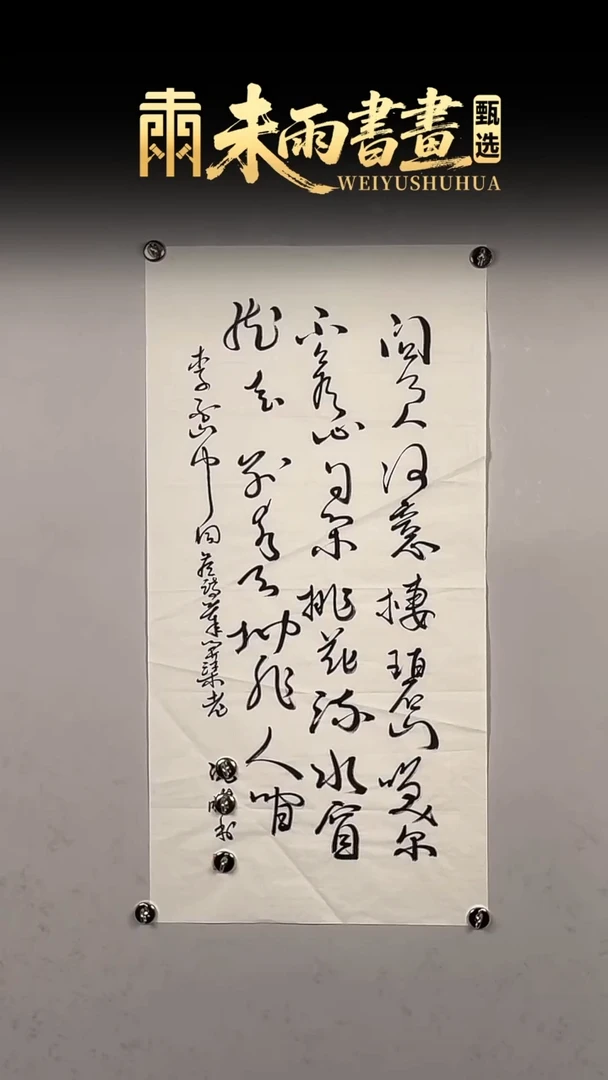 未雨書畫
甄选
WEIYUSHUHUA
问余何意棲碧山笑而
不答心自闲桃花流水窅
然去别有天地非人间
李白山中问答